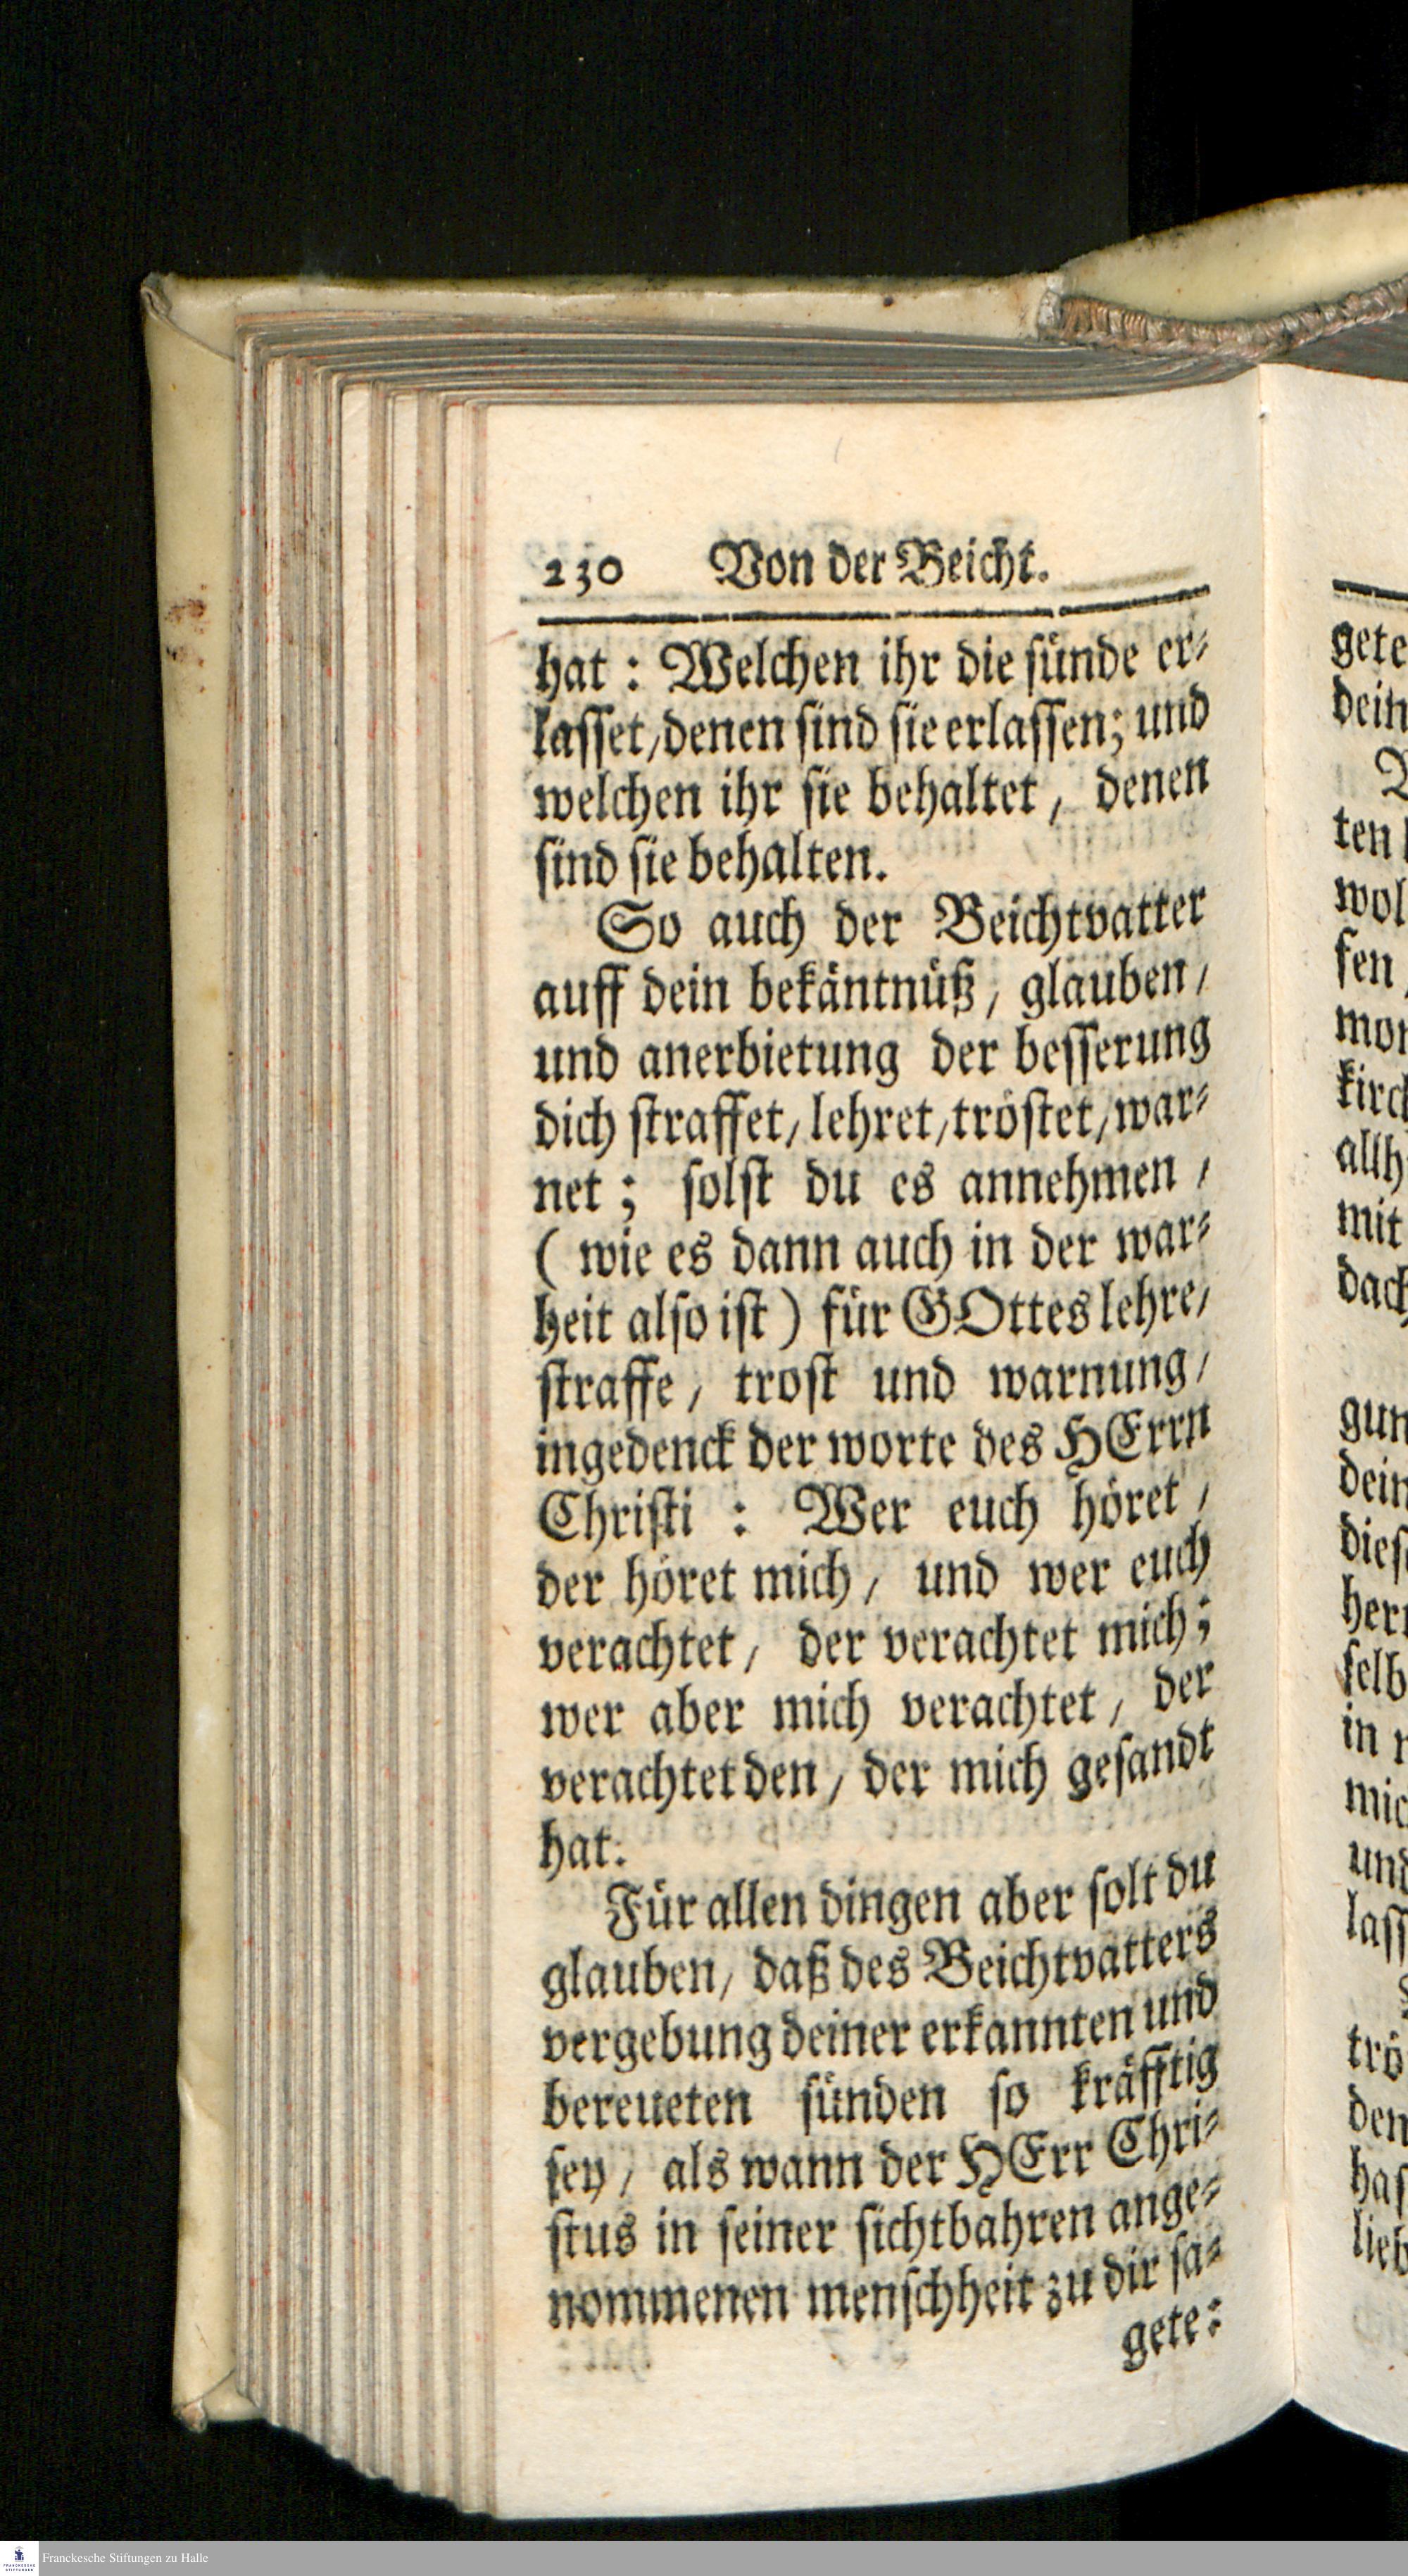 230 Von der Beicht.
hat : Welchen ihr die sünde er-
lasset/denen sind sie erlassen; und
welchen ihr sie behaltet / denen
sind sie behalten.
So auch der Beichtvatter
auff dein bekäntnüß / glauben /
und anerbietung der besserung
dich straffet/lehret/tröstet/war-
net ; solst du es annehmen /
( wie es dann auch in der war-
heit also ist ) für GOttes lehre/
straffe / trost und warnung/
ingedenck der worte des HErrn
Christi : Wer euch höret /
der höret mich / und wer euch
verachtet / der verachtet mich;
wer aber mich verachtet / der
verachtet den / der mich gesandt
hat.
Für allen dingen aber solt du
glauben/ daß des Beichtvatters
vergebung deiner erkannten und
bereueten sünden so kräfftig
sey / als wann der HErr Chri-
stus in seiner sichtbahren ange-
nommenen menschheit zu dir sa-
gete:
gete
dein
ten
wol
sen
mor
kirch
allh
mit
dach
gun
dein
dies
her
selb
in
mic
und
lass
trö
den
has
lieb
Franckesche Stiftungen zu Halle